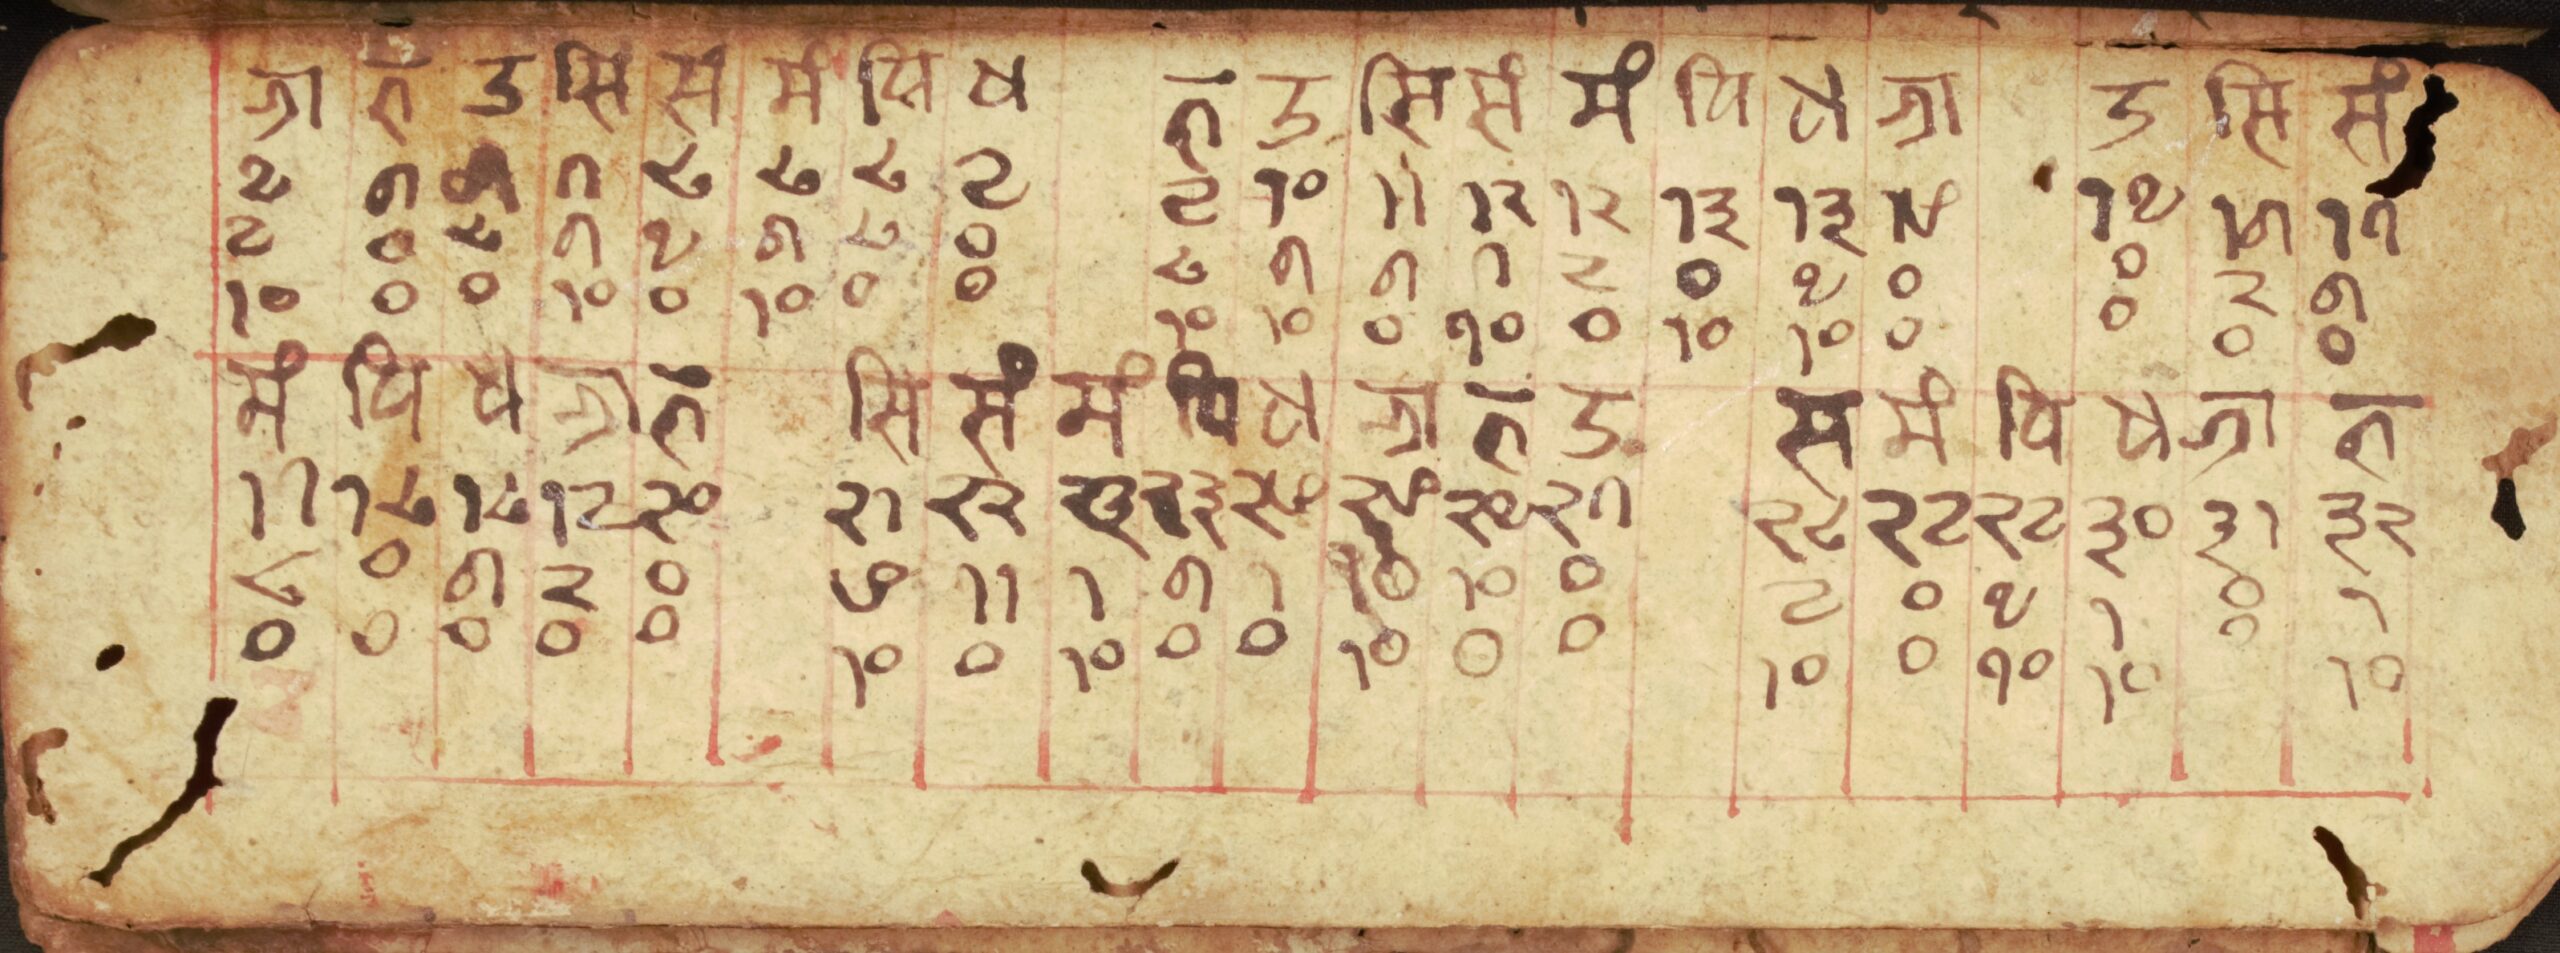 भ्रा भ उ सि सं मं पि धा भ उ सि सं मं पि धा भ्रा उ सि सं
५ ६ ६ ७ ८ ८ ८ ९ ९ १० ११ १२ १२ १३ १३ १४ १५ १६ १७
९ ० ८ ६ ५ ६ ८ ० ८ ६ ६ ७ २ ० ५ ० ० २ ६
१० ० ० १० ० १० ० ० १० १० ० १० ० १० १० ० ० ० ०
मं पि धा भ्रा भ सि सं मं पि धा भ्रा भ उ सं मं पि धा भ्रा भ
१७ १८ १८ १९ २० २१ २२ २३ २३ २४ २४ २५ २७ २८ २९ २९ ३० ३१ ३२
८ ० ६ २ ० ४ ११ १ ६ १ १० १० ० ९ ० ५ १ ० १
० ० ० ० ० १० ० १० ० ० १० ० ० १० ० १० १० ० १०